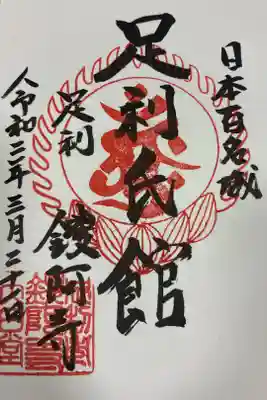 日本百名城
足利氏館
足利
鑁阿寺
令和二年三月二十一日